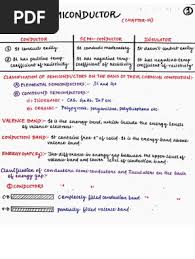 PDF
SEMICONDUCTOR
(CHAPTER-14)
①
CONDUCTOR SEMI-CONDUCTOR INSULATOR
① It conducts easily ① It conducts moderately ① It doesn't conduct
② It has positive temp. coefficient of resistivity ② It has negative temp. coefficient of resistivity ② It has negative temp. coefficient of resistivity
CLASSIFICATION OF SEMICONDUCTORS ON THE BASIS OF THEIR CHEMICAL COMPOSITION:
① ELEMENTAL SEMICONDUCTORS - Si and Ge
② COMPOUND SEMICONDUCTORS -
Inorganic - CdS, GaAs, InP etc
Organic - Polypyrrole, Polyaniline, Polythiophene etc
VALENCE BAND:- The energy band which includes the energy levels of the valence electrons is the valence band.
CONDUCTION BAND:- It contains free e⁻s of solid. It is the energy band above the valence band.
ENERGY GAP (Eg):- The difference in energy between the lower level of conduction band and the upper level of valence band.
Classification of conductors, semiconductors and Insulators on the basis of energy gap:
① CONDUCTORS
completely-filled conduction band
partially-filled valence band